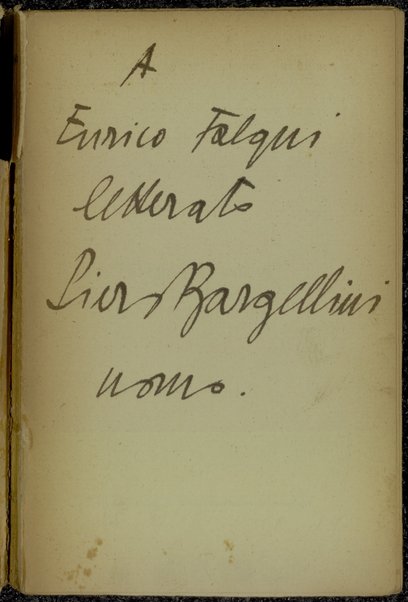 A
Enrico Falqui
letterato
Piero Bargellini
uomo.